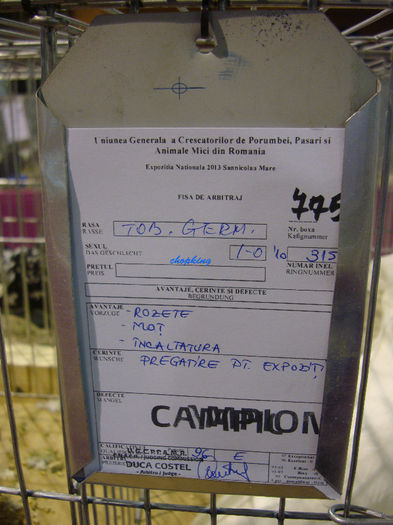 Uniunea Generala a Crescatorilor de Porumbei, Pasari si
Animale Mici din Romania
Expozitia Nationala 2013 Sannicolau Mare
FISA DE ARBITRAJ
775
RASA
RASSE
TOB. GERM.
Nr. boxa
Kafignummer
SEXUL
DAS GESCHLACHT
1-0
'10
315
PRETUL
PREIS
chopking
NUMAR INEL
RINGNUMMER
AVANTAJE, CERINTE SI DEFECTE
BEGRUNDUNG
AVANTAJE
VORZUGE
- ROZETE
- MOȚ
- ÎNCALTATURA
CERINTE
WUNSCHE
PREGATIRE PT. EXPOZIȚI
DEFECTE
MANGEL
CAMPION
CALIFIC
96 E
DUCA COSTEL
- Arbitru / Judge -